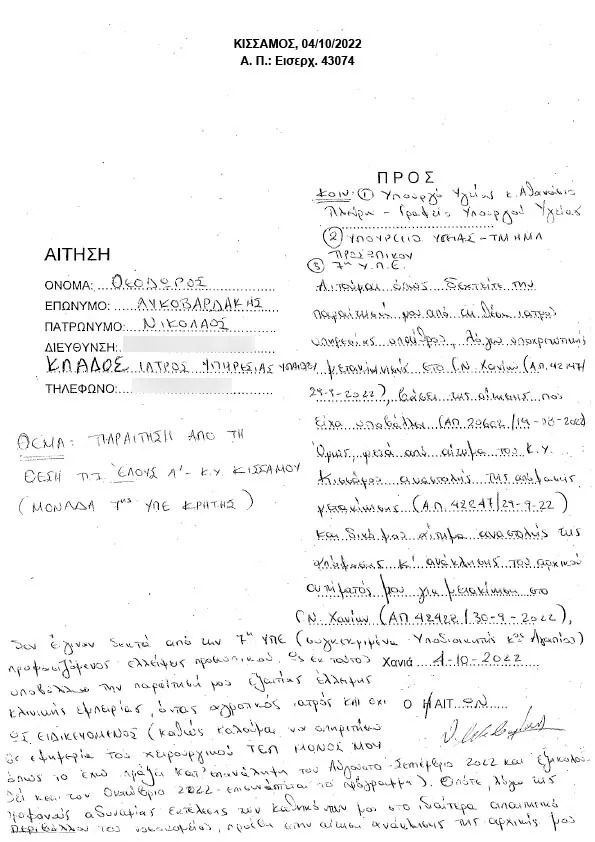 ΚΙΣΣΑΜΟΣ, 04/10/2022
Α. Π.: Εισερχ. 43074
ΑΙΤΗΣΗ
ΟΝΟΜΑ: ΘΕΟΔΩΡΟΣ
ΕΠΩΝΥΜΟ: ΛΥΚΟΒΑΡΔΑΚΗΣ
ΠΑΤΡΩΝΥΜΟ: ΝΙΚΟΛΑΟΣ
ΔΙΕΥΘΥΝΣΗ:
ΚΛΑΔΟΣ ΙΑΤΡΟΣ ΥΠΗΡΕΣΙΑΣ ΥΠΑΙΘΡΟΥ
ΤΗΛΕΦΩΝΟ:
ΘΕΜΑ: ΠΑΡΑΙΤΗΣΗ ΑΠΟ ΤΗ
ΘΕΣΗ ΤΗΣ ΈΛΟΥΣ Α'- Κ.Υ. ΚΙΣΣΑΜΟΥ
(ΜΟΝΑΔΑ 7ης ΥΠΕ ΚΡΗΤΗΣ)
ΠΡΟΣ
ΚΟΙΝ: ① Υπουργό Υγείας κ. Αθανάσιο
Πλεύρη - Γραφείο Υπουργού Υγείας
② ΥΠΟΥΡΓΕΙΟ ΥΓΕΙΑΣ - ΤΜΗΜΑ
ΠΡΟΣΩΠΙΚΟΥ
③ 7η Υ.Π.Ε.
Αιτούμαι όπως δεχτείτε την
παραίτησή μου από τη θέση ιατρού
υπηρεσίας υπαίθρου, λόγω υποχρεωτικής
μετακίνησης στο Γ.Ν. Χανίων (Α.Π. 42147/
29-9-2022), βάσει της αίτησης που
είχα υποβάλλει (ΑΠ 20602/19-
Όμως μετά από αίτημα του Κ.Υ.
Κισσάμου αναστολής της απόφασης
μετακίνησης (Α.Π. 42247/29-9-22)
και δικό μου αίτημα αναστολής της
απόφασης κ' ανάκλησης του αρχικού
αιτήματός μου για μετακίνηση στο
Γ.Ν. Χανίων (ΑΠ 42422/30-9-2022),
δεν έγιναν δεκτά από την 7η ΥΠΕ (συγκεκριμένα Υποδιοικητής κος Αγαπίου)
προφασιζόμενος ελλείψεις προσωπικού. Ως εκ τούτου
Χανιά 4-10-2022
υποβάλλω την παραίτησή μου εξαιτίας έλλειψης
κλινικής εμπειρίας, όντας αγροτικός ιατρός και όχι
Ο ΗΑΙΤ ΩΝ
ΩΣ ΕΙΔΙΚΕΥΟΜΕΝΟΣ (καθώς καλούμαι να υπηρετήσω
ως εφημερία του χειρουργικού ΤΕΠ ΜΟΝΟΣ ΜΟΥ
όπως το έχω πράξει κατ' επανάληψη τον Αύγουστο - Σεπτέμβριο 2022 και
και τον Οκτώβριο 2022 - επισυνάπτεται το πρόγραμμα). Οπότε, λόγω της
προφανούς αδυναμίας εκτέλεσης των καθηκόντων μου στο ιδιαίτερα απαιτητικό
περιβάλλον του νοσοκομείου, στην αίτηση ανάκλησης της αρχικής μου